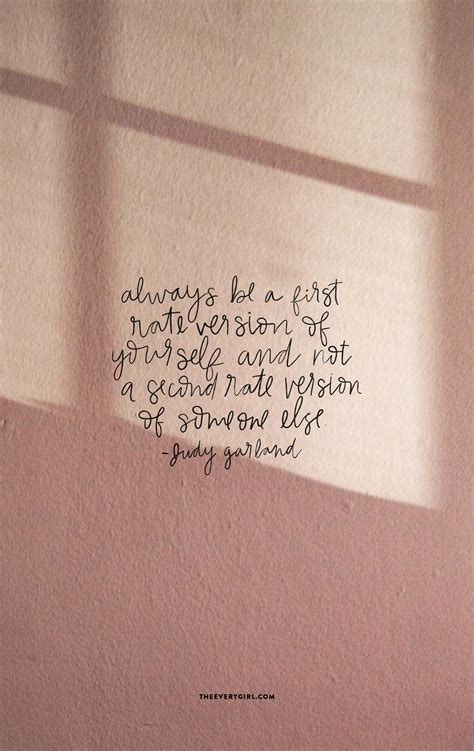 always be a first
rate version of
yourself and not
a second rate version
of someone else.
-Judy garland
THEEVERYGIRL.COM